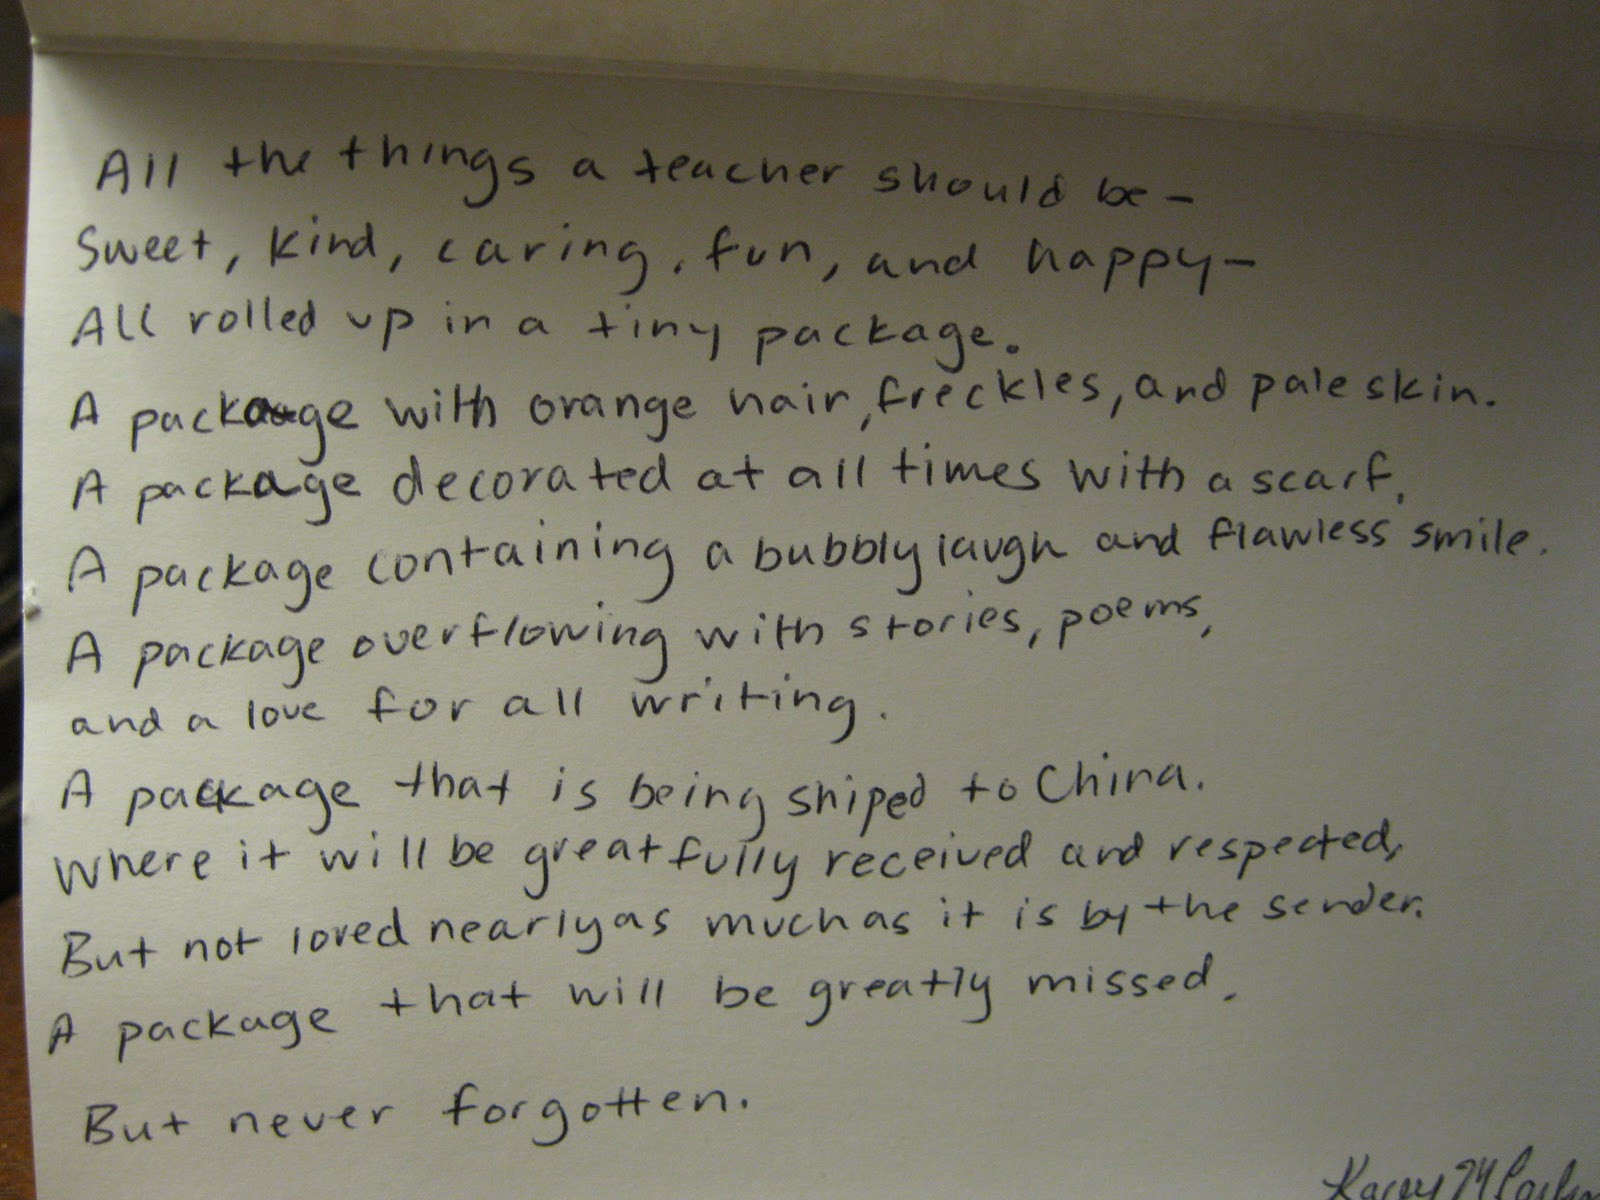 All the things a teacher should be-
Sweet, kind, caring, fun, and happy-
All rolled up in a tiny package.
A package with orange hair, freckles, and pale skin.
A package decorated at all times with a scarf.
A package containing a bubbly laugh and flawless smile.
A package overflowing with stories, poems,
and a love for all writing.
A package that is being shiped to China.
Where it will be greatfully received and respected,
But not loved nearly as much as it is by the sender.
A package that will be greatly missed.
But never forgotten.
Kacey